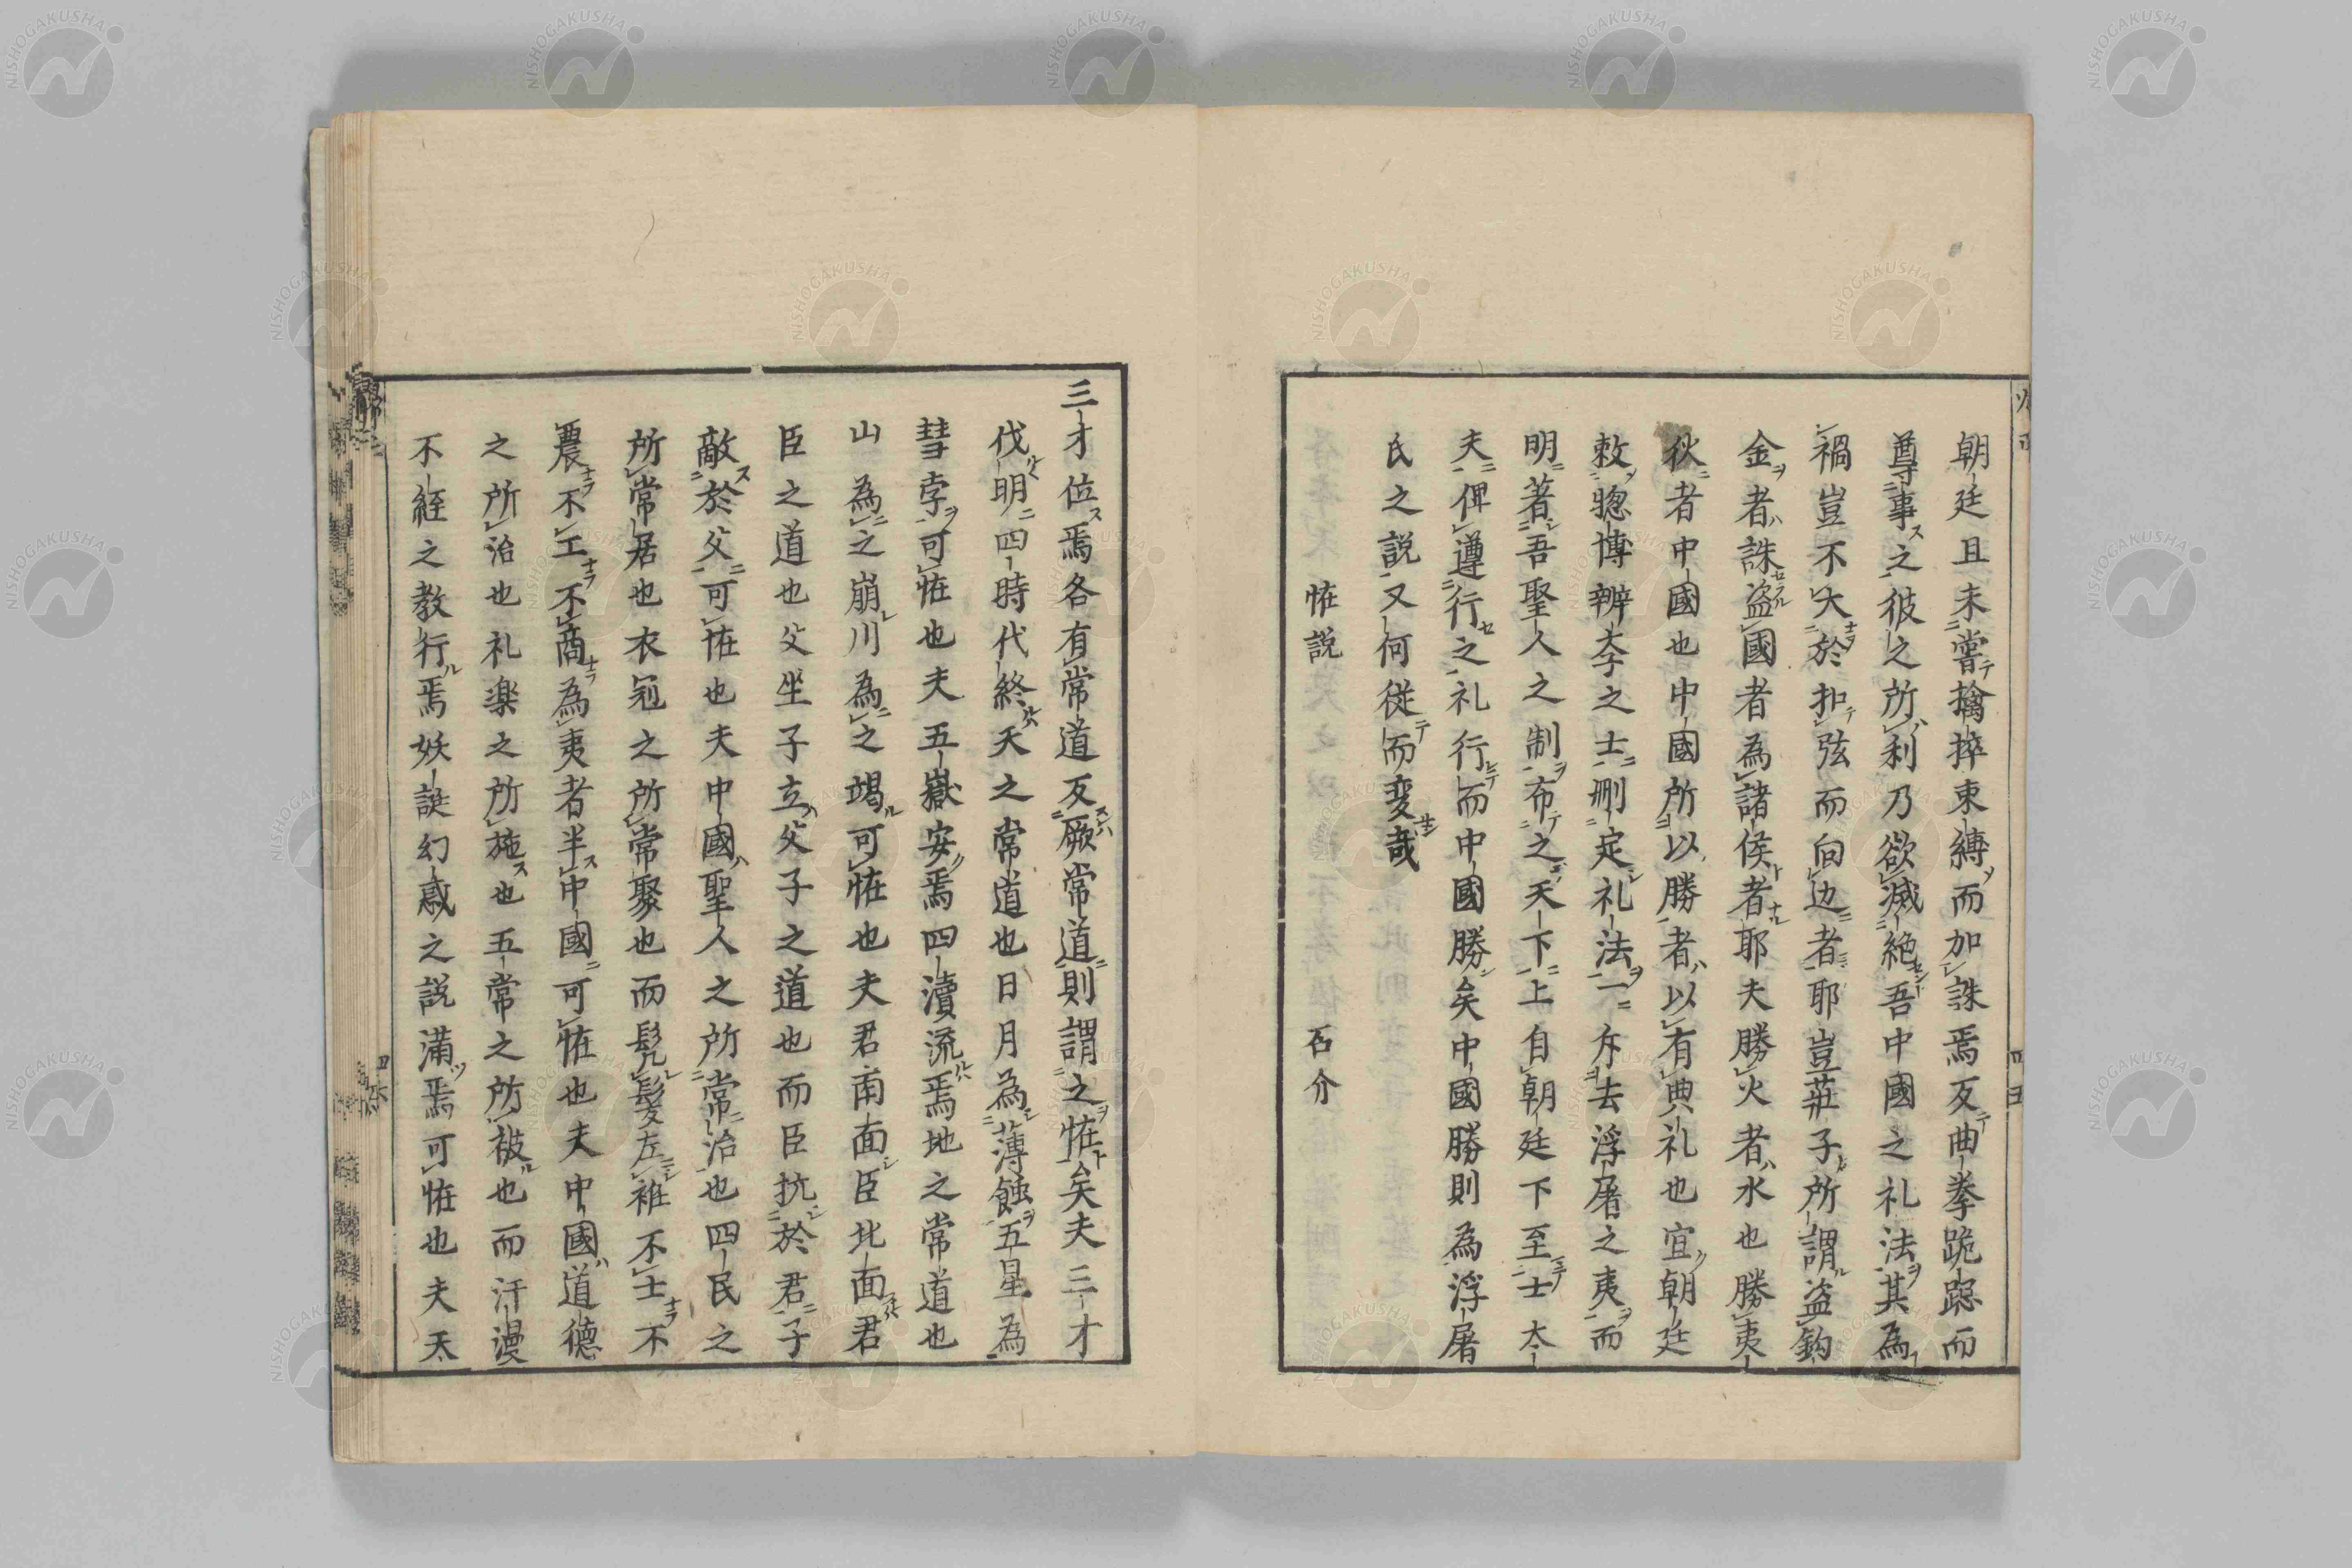 朝廷且未嘗擒捽束縛而加誅焉反曲拳跪跽而
尊事之彼之所利乃欲滅絶吾中國之礼法其為
禍豈不大於扣弦而向边者耶豈莊子所謂盗鈎
金者誅盗國者為諸侯者耶夫勝火者水也勝夷
狄者中國也中國所以勝者以有典礼也宜朝廷
敕聰博辨孝之士刪定礼法一斥去浮屠之夷而
明著吾聖人之制布之天下上自朝廷下至士大
夫俾遵行之礼行而中國勝矣中國勝則為浮屠
氏之説又何従而変哉
恠説 石介
三才位焉各有常道反厥常道則謂之恠矣夫三才
伐明四時代終天之常道也日月為薄蝕五星為
彗孛可恠也夫五嶽安焉四瀆流焉地之常道也
山為之崩川為之竭可恠也夫君南面臣北面君
臣之道也父坐子立父子之道也而臣抗於君子
敵於父可恠也夫中國聖人之所常治也四民之
所常居也衣冠之所常聚也而髡髮左衽不士不
農不工不商為夷者半中國可恠也夫中國道德
之所治也礼楽之所施也五常之所被也而汗漫
不経之教行焉妖誕幻惑之説満焉可恠也夫天
NISHOGAKUSHA